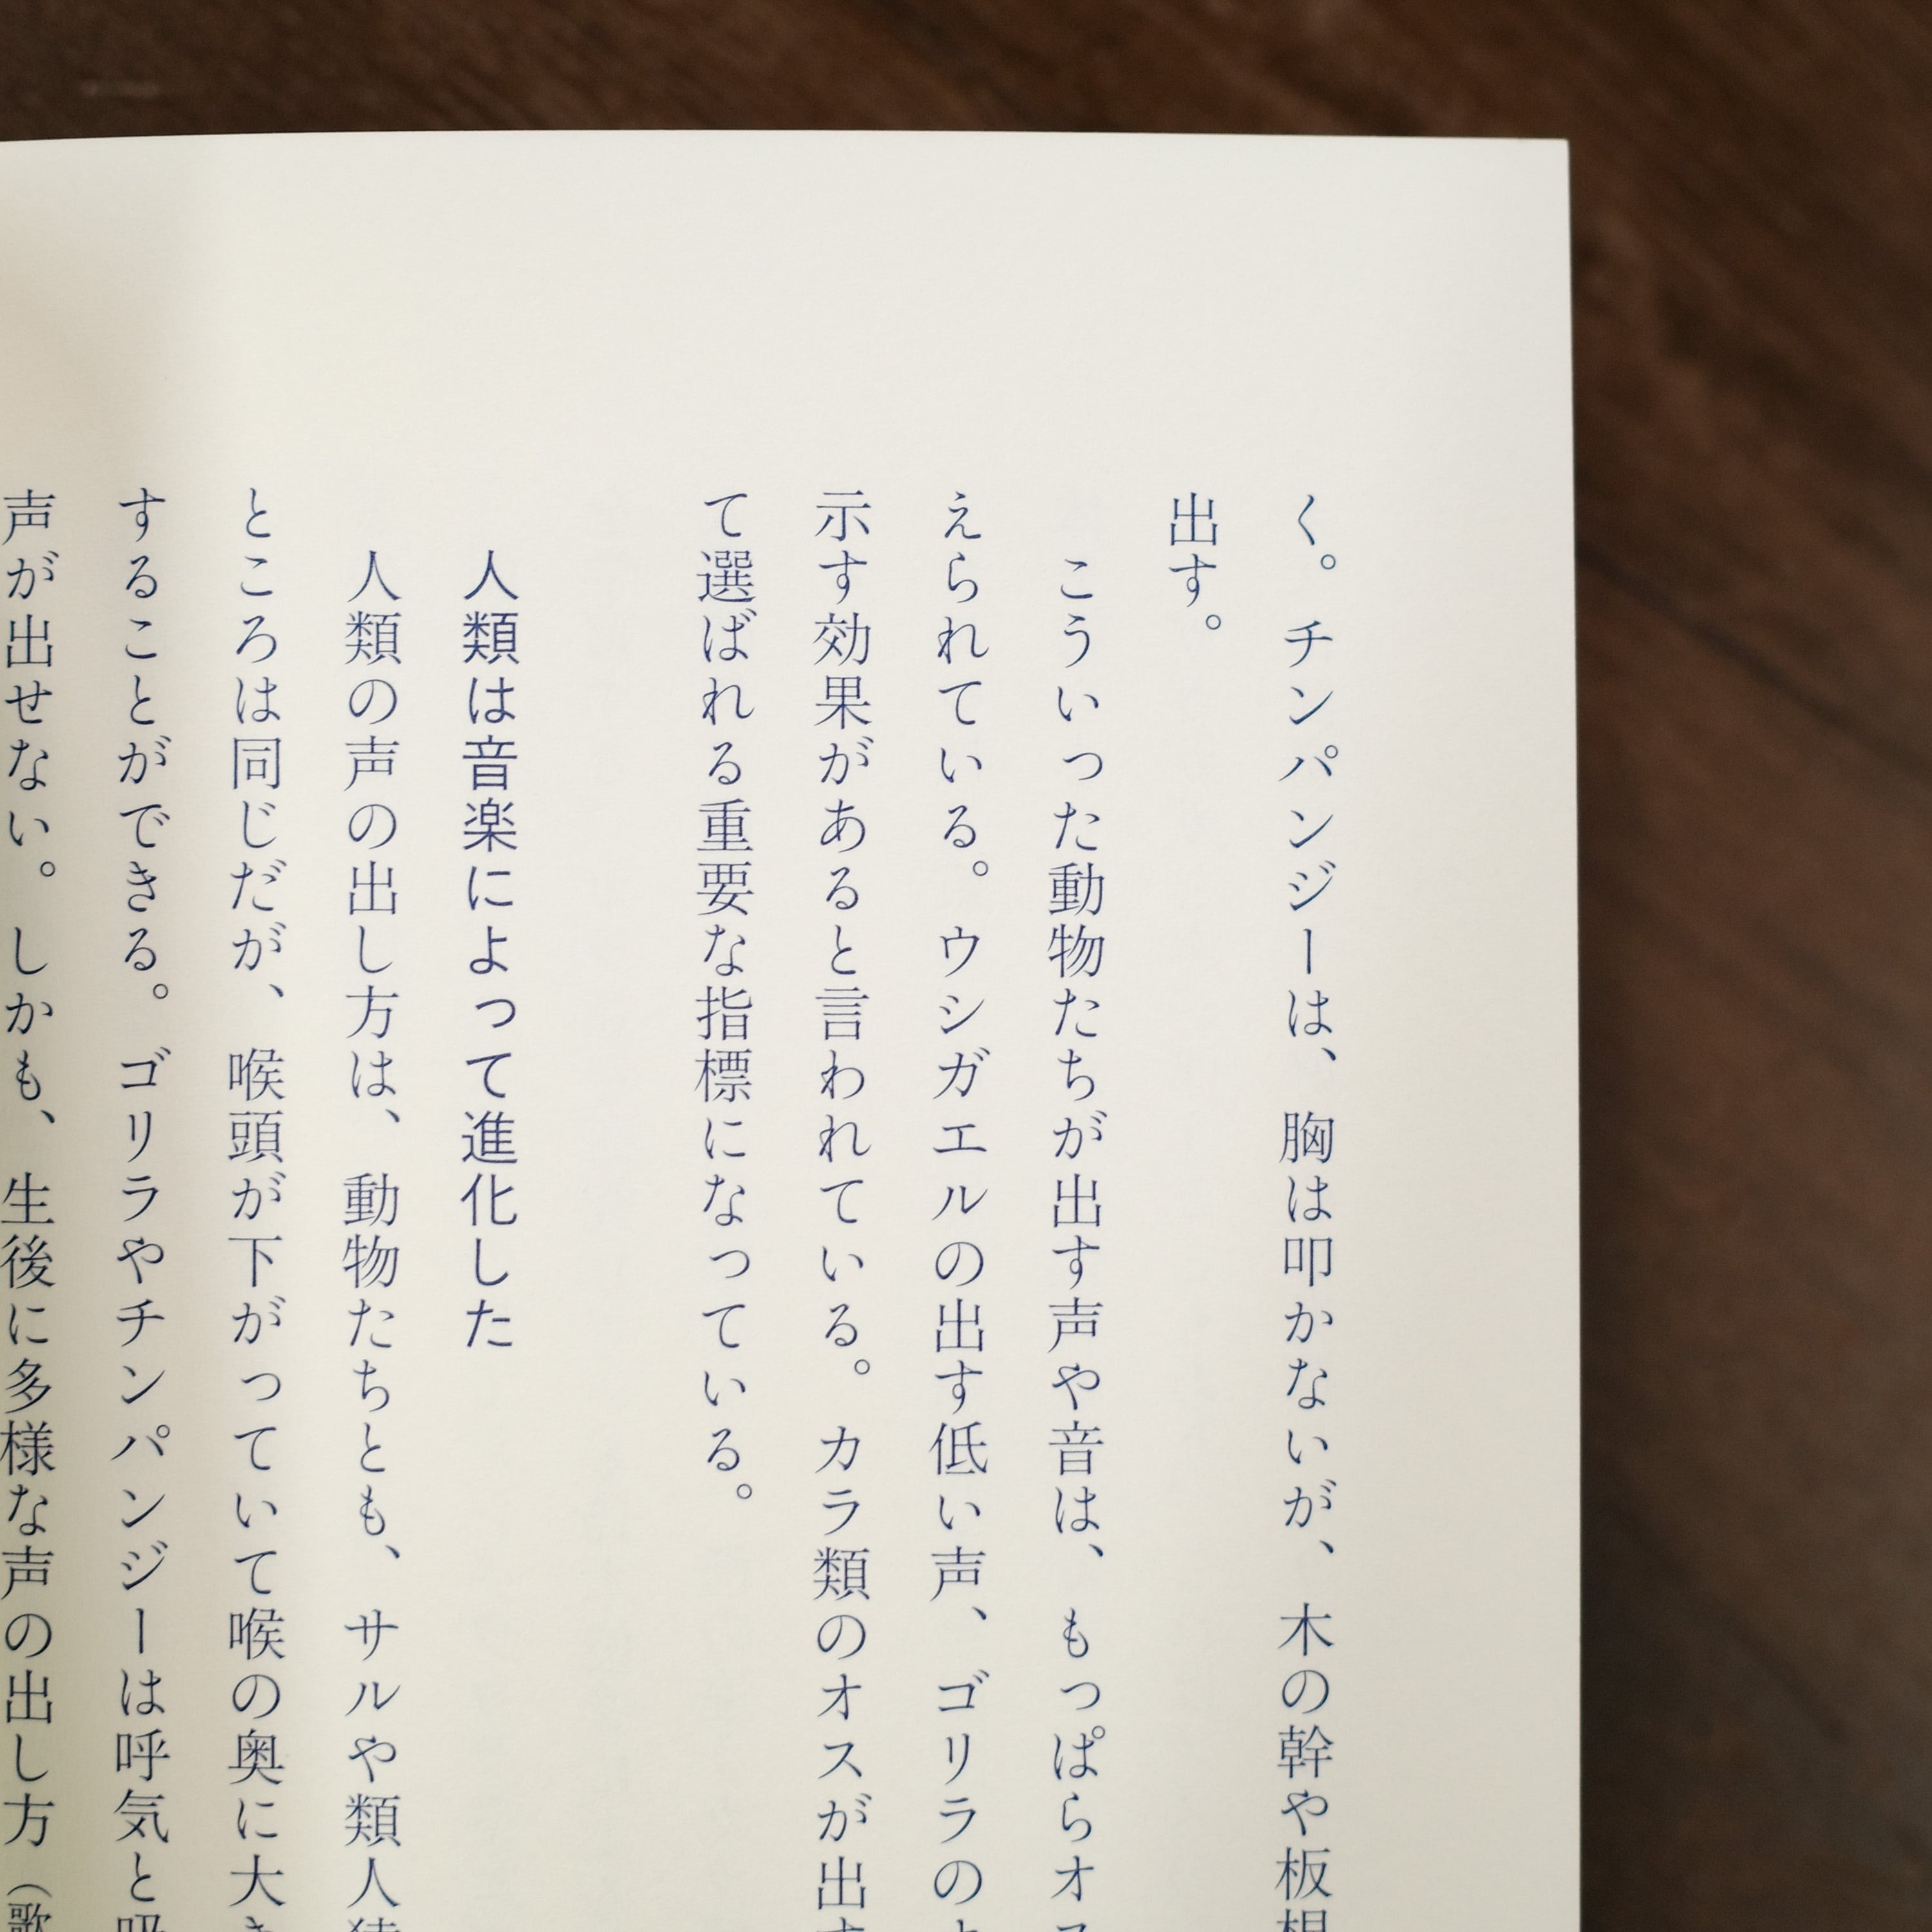 く。チンパンジーは、胸は叩かないが、木の幹や板根
出す。
こういった動物たちが出す声や音は、もっぱらオス
えられている。ウシガエルの出す低い声、ゴリラの
示す効果があると言われている。カラ類のオスが出す
て選ばれる重要な指標になっている。
人類は音楽によって進化した
人類の声の出し方は、動物たちとも、サルや類人猿
ところは同じだが、喉頭が下がっていて喉の奥に大き
することができる。ゴリラやチンパンジーは呼気と吸
声が出せない。しかも、生後に多様な声の出し方（歌